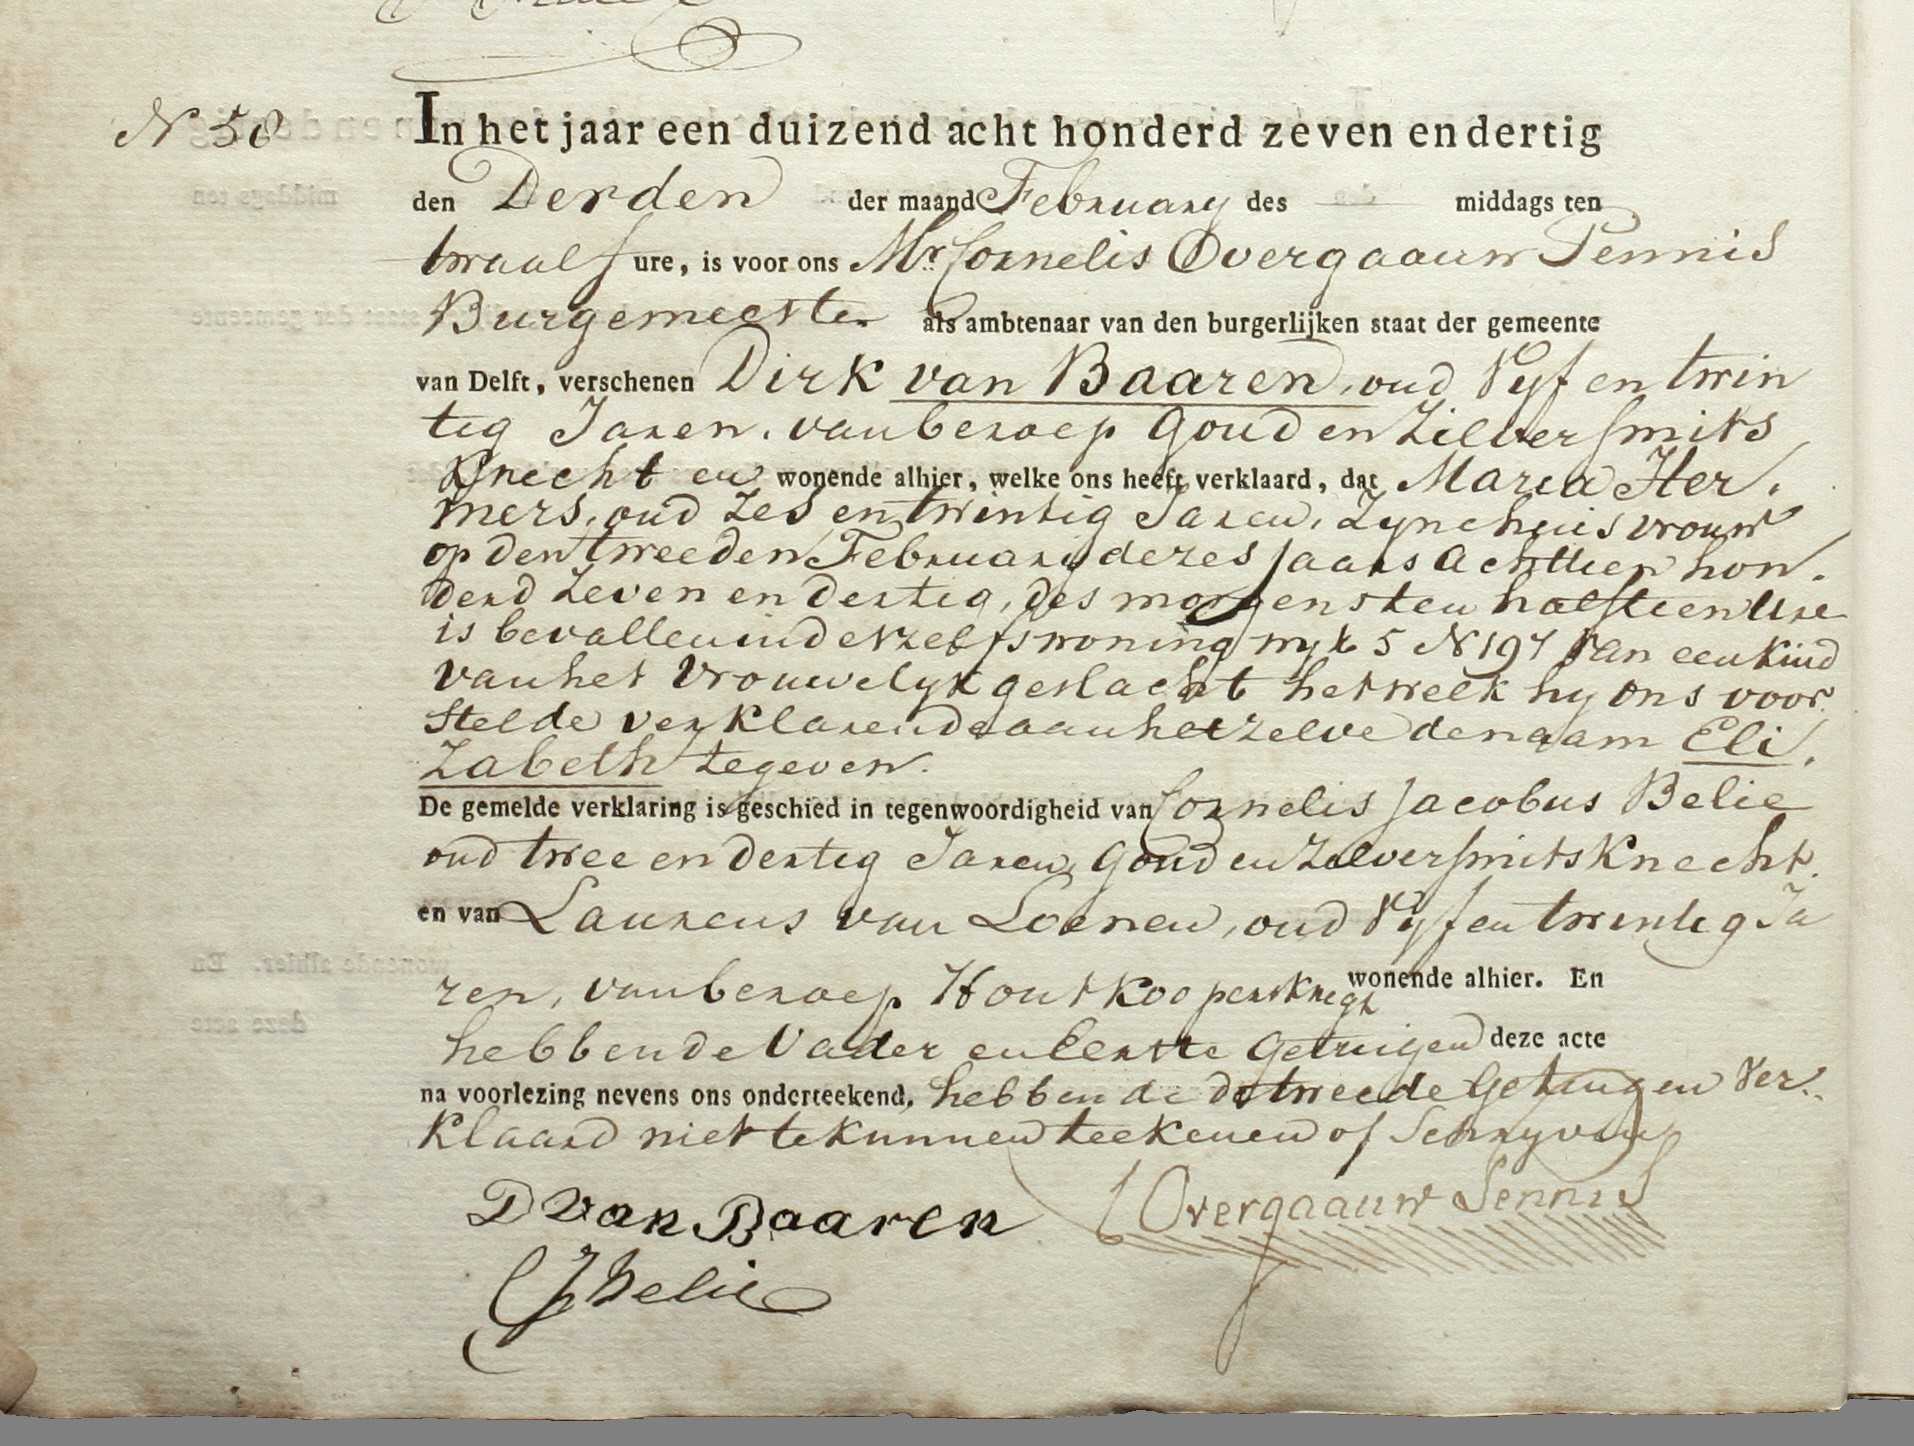 N 58
In het jaar een duizend acht honderd zeven en dertig
den Derden der maand February des middags ten
twaalf ure, is voor ons Mr. Cornelis Overgaauw Pennis
Burgemeester als ambtenaar van den burgerlijken staat der gemeente
van Delft, verschenen Dirk van Baaren, oud Vyf en twin
tig Jaren, van beroep Goud en Zilversmits
Knecht en wonende alhier, welke ons heeft verklaard, dat Maria Her,
mers, oud Zes en twintig Jaren, Zyne huisvrouw
op den tweeden February dezes Jaars Achttien hon,
derd Zeven en Dertig, des morgens ten half tien Ure
is bevallen in deszelfs woning wyk 5 N 197 van een kind
van het Vrouwelyk geslacht hetwelk hy ons voor
stelde verklarende aan hetzelve de naam Eli,
Zabeth te geven.
De gemelde verklaring is geschied in tegenwoordigheid van Cornelis Jacobus Belie
oud twee en dertig Jaren, Goud en Zilversmits Knecht
en van Laurens van Loenen, oud Vyf en twintig Ja
ren, van beroep Houtkoopersknegt wonende alhier. En
hebbende Vader en Eerste Getuigen deze acte
na voorlezing nevens ons onderteekend, hebbende de tweede Getuigen Ver,
klaard niet te kunnen teekenen of Schryven
D van Baaren
C Overgaauw Pennis
CJ Belie